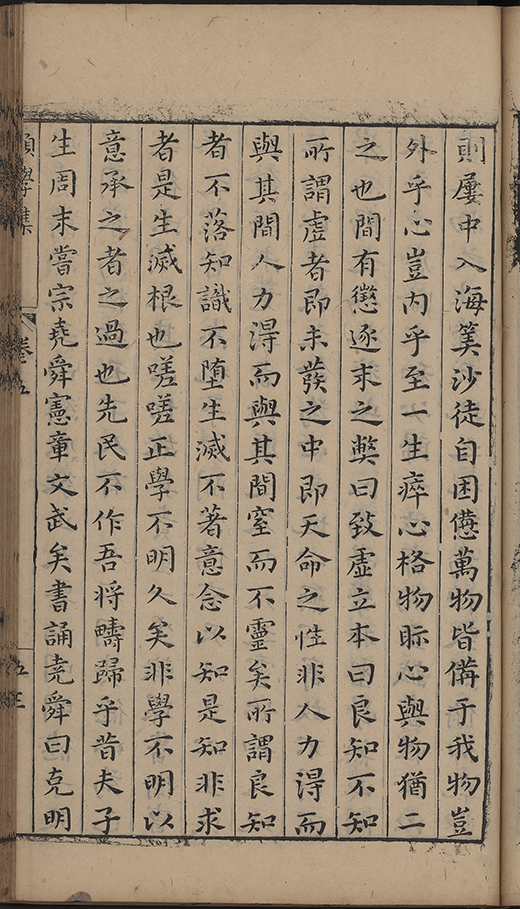 則屢中入海筭沙徒自困憊萬物皆備于我物豈
外乎心豈内乎至一生瘁心格物眎心與物猶二
之也間有懲逐末之獘曰致虛立本曰良知不知
所謂虛者即未發之中即天命之性非人力得而
與其間人力得而與其間窒而不靈矣所謂良知
者不落知識不堕生滅不著意念以知是知非求
者是生滅根也嗟嗟正學不明久矣非學不明以
意承之者之過也先民不作吾将疇歸乎昔夫子
生周末嘗宗堯舜憲章文武矣書誦堯舜曰克明
學集
卷五
五三